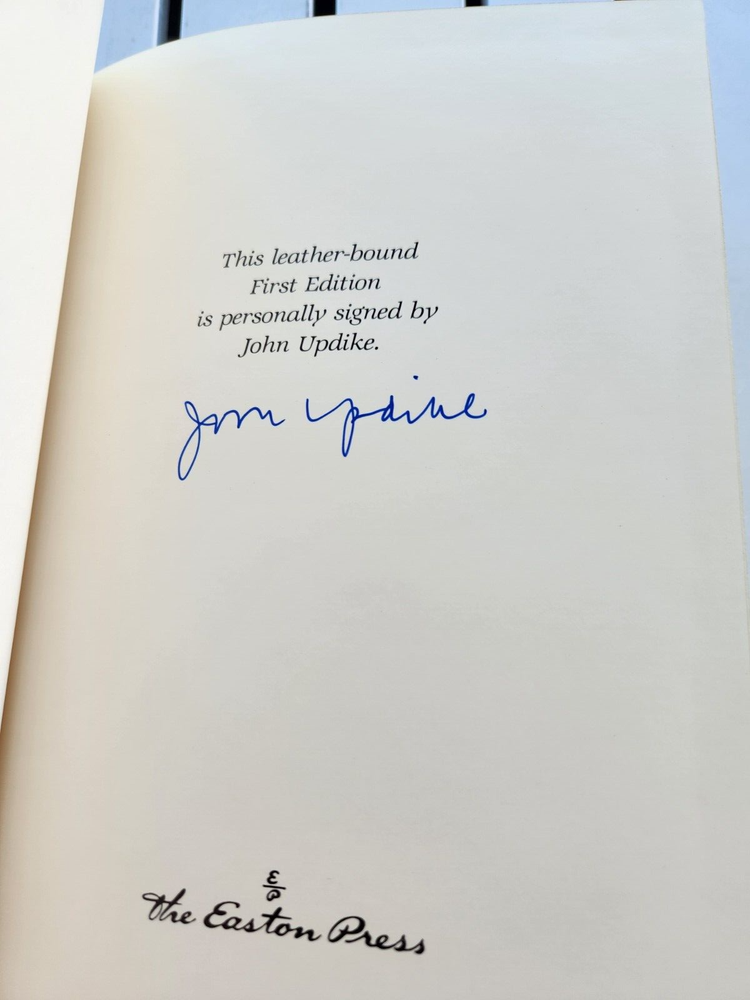 This leather-bound
First Edition
is personally signed by
John Updike.
John Updike
E
P
the Easton Press